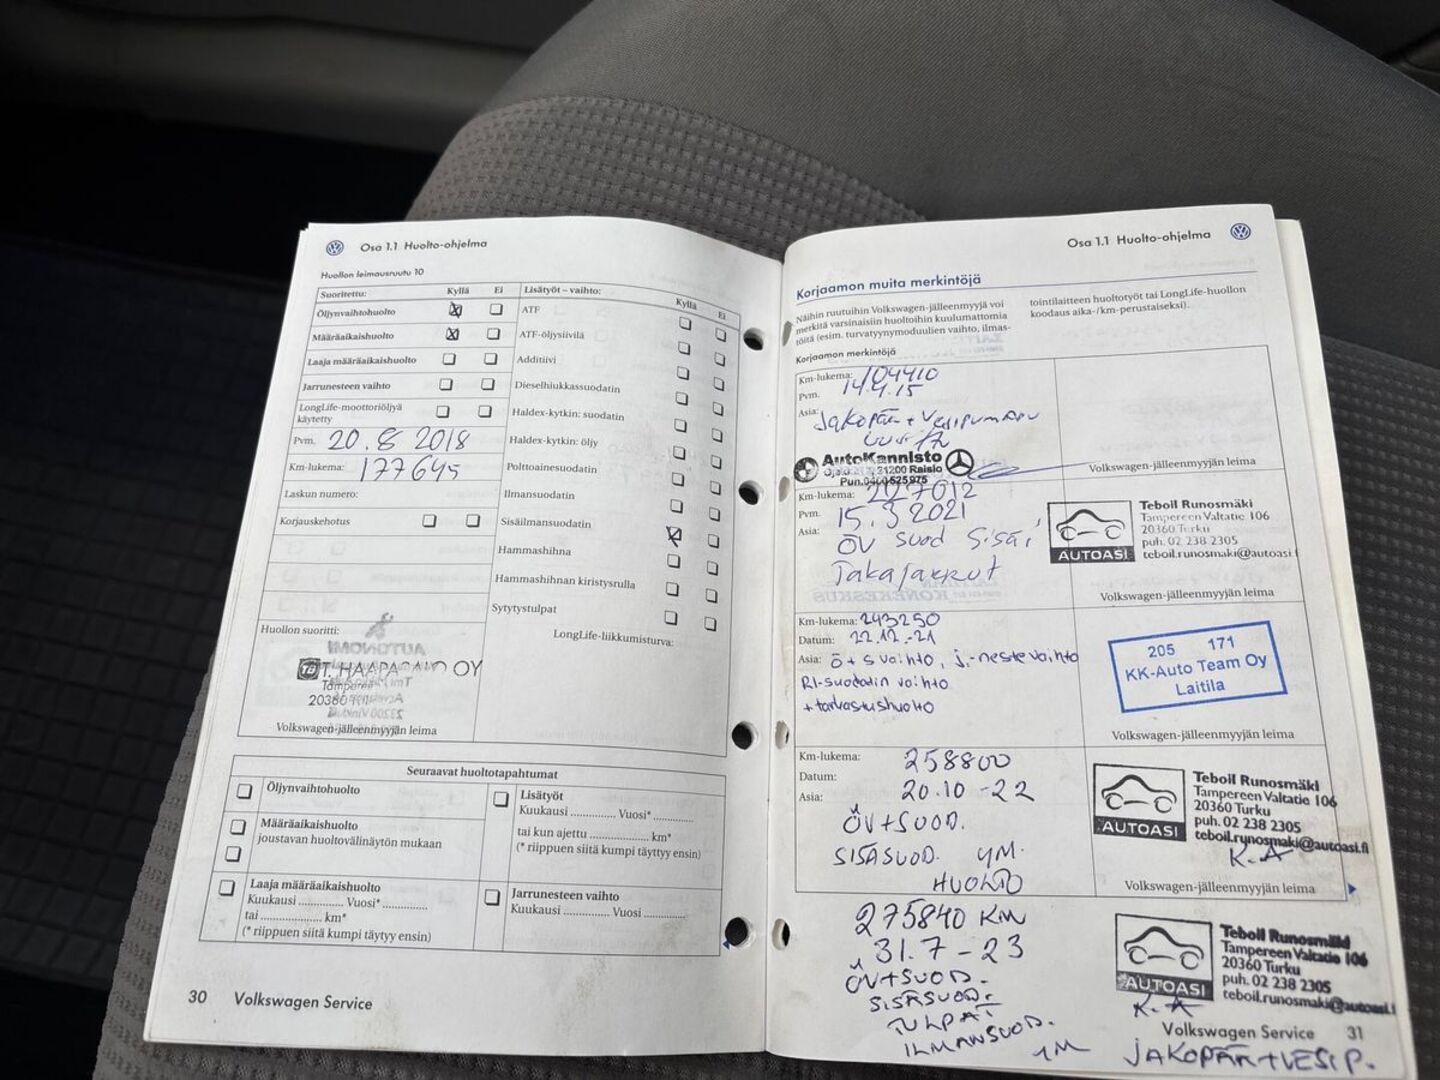 Osa 1.1 Huolto-ohjelma
Huollon leimausruutu 10
Suoritettu: Kyllä Ei
Öljynvaihtohuolto
Määräaikaishuolto
Laaja määräaikaishuolto
Jarrunesteen vaihto
LongLife-moottoriöljyä
käytetty
Pvm. 20.8 2018
Km-lukema: 177645
Laskun numero:
Korjauskehotus
Huollon suoritti:
T. HAAPARAND OY
20380
Volkswagen-jälleenmyyjän leima
Lisätyöt – vaihto: Kyllä Ei
ATF
ATF-öljysiivilä
Additiivi
Dieselhiukkassuodatin
Haldex-kytkin: suodatin
Haldex-kytkin: öljy
Polttoainesuodatin
Ilmansuodatin
Sisäilmansuodatin
Hammashihna
Hammashihnan kiristysrulla
Sytytystulpat
LongLife-liikkumisturva:
Seuraavat huoltotapahtumat
Öljynvaihtohuolto
Määräaikaishuolto
joustavan huoltovälinäytön mukaan
Laaja määräaikaishuolto
Kuukausi .............. Vuosi* ..............
tai .................... km*
(* riippuen siitä kumpi täytyy ensin)
Lisätyöt
Kuukausi .............. Vuosi* ..............
tai kun ajettu .................. km*
(* riippuen siitä kumpi täytyy ensin)
Jarrunesteen vaihto
Kuukausi .............. Vuosi ..............
30 Volkswagen Service
Osa 1.1 Huolto-ohjelma
Korjaamon muita merkintöjä
Näihin ruutuihin Volkswagen-jälleenmyyjä voi
merkitä varsinaisiin huoltoihin kuulumattomia
töitä (esim. turvatyynymoduulien vaihto, ilmas-
tointilaitteen huoltotyöt tai LongLife-huollon
koodaus aika-/km-perustaiseksi).
Korjaamon merkintöjä
Km-lukema: 104410
Pvm. 14.4.15
Asia: Jakopää + Vesipumppu
AutoKannisto
21200 Raisio
Pun.0400 525975
Volkswagen-jälleenmyyjän leima
Km-lukema: 227012
Pvm. 15.3 2021
Asia: ÖV suod Sisäi
Takajarrut
AUTOASI
Teboil Runosmäki
Tampereen Valtatie 106
20360 Turku
puh. 02 238 2305
teboil.runosmaki@autoasi.f
Volkswagen-jälleenmyyjän leima
Km-lukema: 243250
Datum: 22.12.-21
Asia: Ö + S vaihto, j.-neste vaihto
RI-suodatin vaihto
+ tarkastushuolto
205 171
KK-Auto Team Oy
Laitila
Volkswagen-jälleenmyyjän leima
Km-lukema: 258800
Datum: 20.10-22
Asia: ÖV+SUOD.
SISÄSUOD. YM.
HUOLTO
AUTOASI
Teboil Runosmäki
Tampereen Valtatie 106
20360 Turku
puh. 02 238 2305
teboil.runosmaki@autoasi.fi
K.A
Volkswagen-jälleenmyyjän leima
275840 KM
31.7-23
ÖV+SUOD.
SISÄSUOD.
TULPAT
ILMANSUOD.
YM
AUTOASI
Teboil Runosmäki
Tampereen Valtatie 106
20360 Turku
puh. 02 238 2305
teboil.runosmaki@autoasi.
K.A
Volkswagen Service 31
JAKOPÄÄ+VESIP.